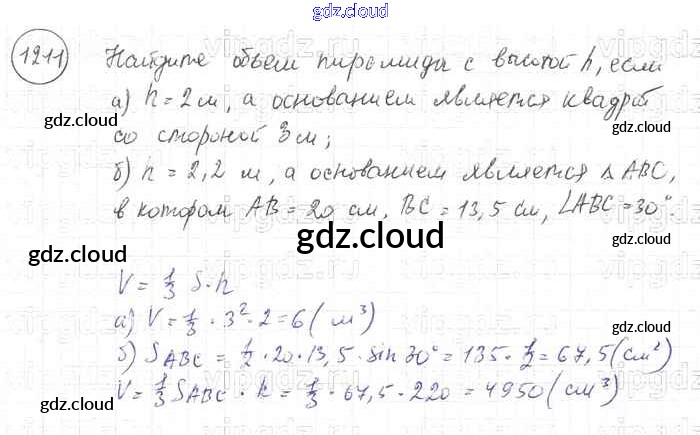 gdz.cloud
1211 Найдите объем пирамиды с высотой h, если
а) h = 2 м, а основанием является квадрат
gdz.cloud
gdz.cloud
со стороной 3 м;
б) h = 2,2 м, а основанием является ΔABC,
в котором AB = 20 см, BC = 13,5 см, ∠ABC = 30°.
gdz.cloud
gdz.cloud
gdz.cloud
V = 1/3 S·h
а) V = 1/3 · 3² · 2 = 6 (м³)
б) S ABC = 1/2 · 20 · 13,5 · sin 30° = 135 · 1/2 = 67,5 (см²)
V = 1/3 S ABC · h = 1/3 · 67,5 · 220 = 4950 (см³)
gdz.cloud
gdz.cloud
gdz.cloud